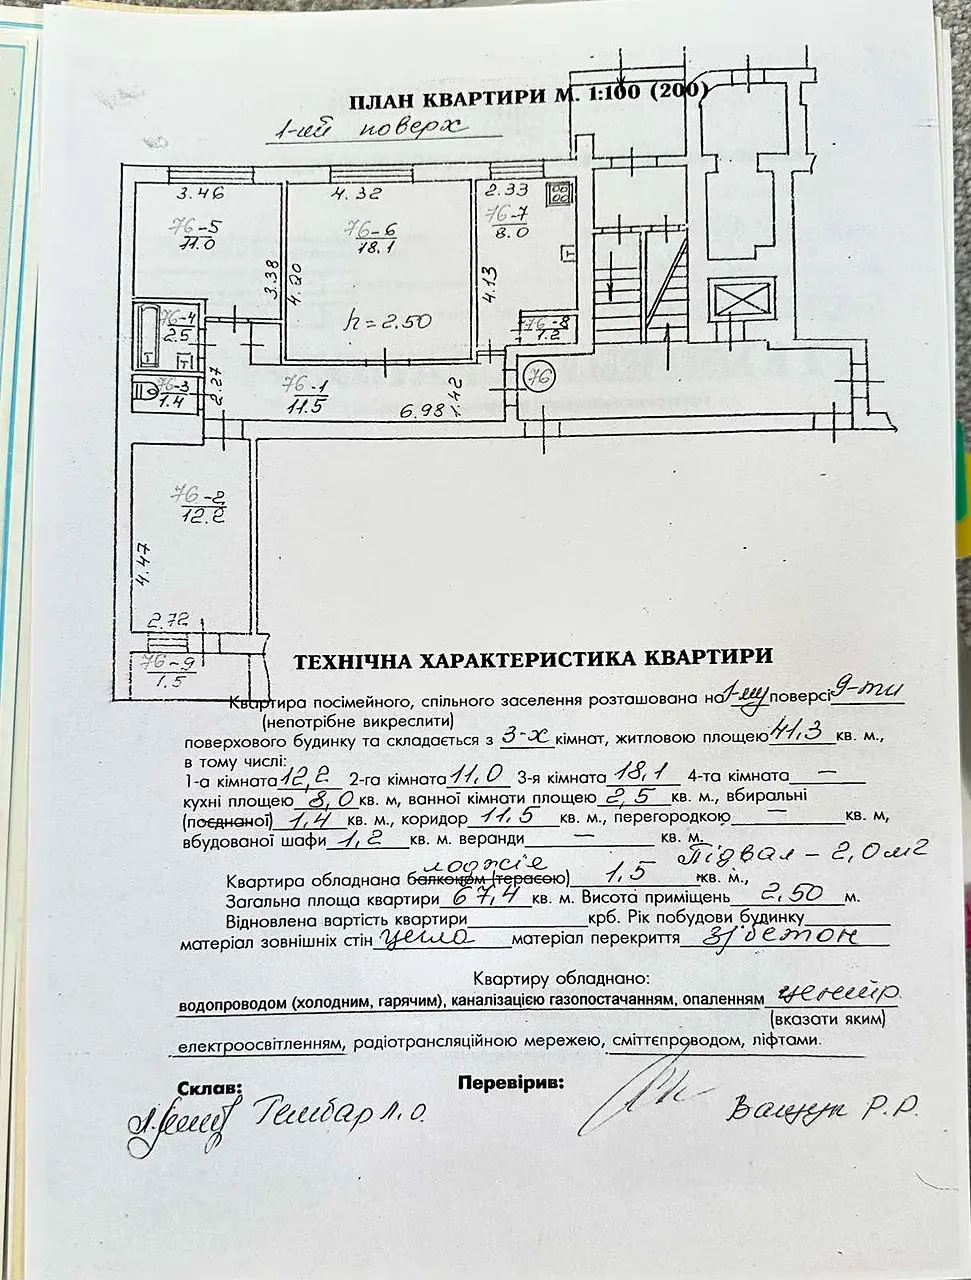 ПЛАН КВАРТИРИ М. 1:100 (200)
1-ий поверх
3.46
4.32
2.33
76-5
11.0
76-6
18.1
76-7
8.0
3.38
4.20
4.13
h=2.50
76-4
2.5
76-8
1.2
76-3
1.4
2.27
76-1
11.5
6.98
1.42
76
76-2
12.2
4.47
2.72
76-9
1.5
ТЕХНІЧНА ХАРАКТЕРИСТИКА КВАРТИРИ
Квартира посімейного, спільного заселення розташована на 1-му поверсі 9-ти
(непотрібне викреслити)
поверхового будинку та складається з 3-х кімнат, житловою площею 41,3 кв. м.,
в тому числі:
1-а кімната 12,2 2-га кімната 11,0 3-я кімната 18,1 4-та кімната —
кухні площею 8,0 кв. м, ванної кімнати площею 2,5 кв. м., вбиральні
(поєднаної) 1,4 кв. м., коридор 11,5 кв. м., перегородкою — кв. м,
вбудованої шафи 1,2 кв. м. веранди — кв. м.
лоджіє Підвал – 2,0 м2
Квартира обладнана балконом (терасою) 1,5 кв. м.,
Загальна площа квартири 67,4 кв. м. Висота приміщень 2,50 м.
Відновлена вартість квартири крб. Рік побудови будинку
матеріал зовнішніх стін цегла матеріал перекриття з/бетон
Квартиру обладнано:
водопроводом (холодним, гарячим), каналізацією газопостачанням, опаленням центр.
(вказати яким)
електроосвітленням, радіотрансляційною мережею, сміттєпроводом, ліфтами.
Склав: Перевірив:
Гембар Л.О. Ващук Р.Р.